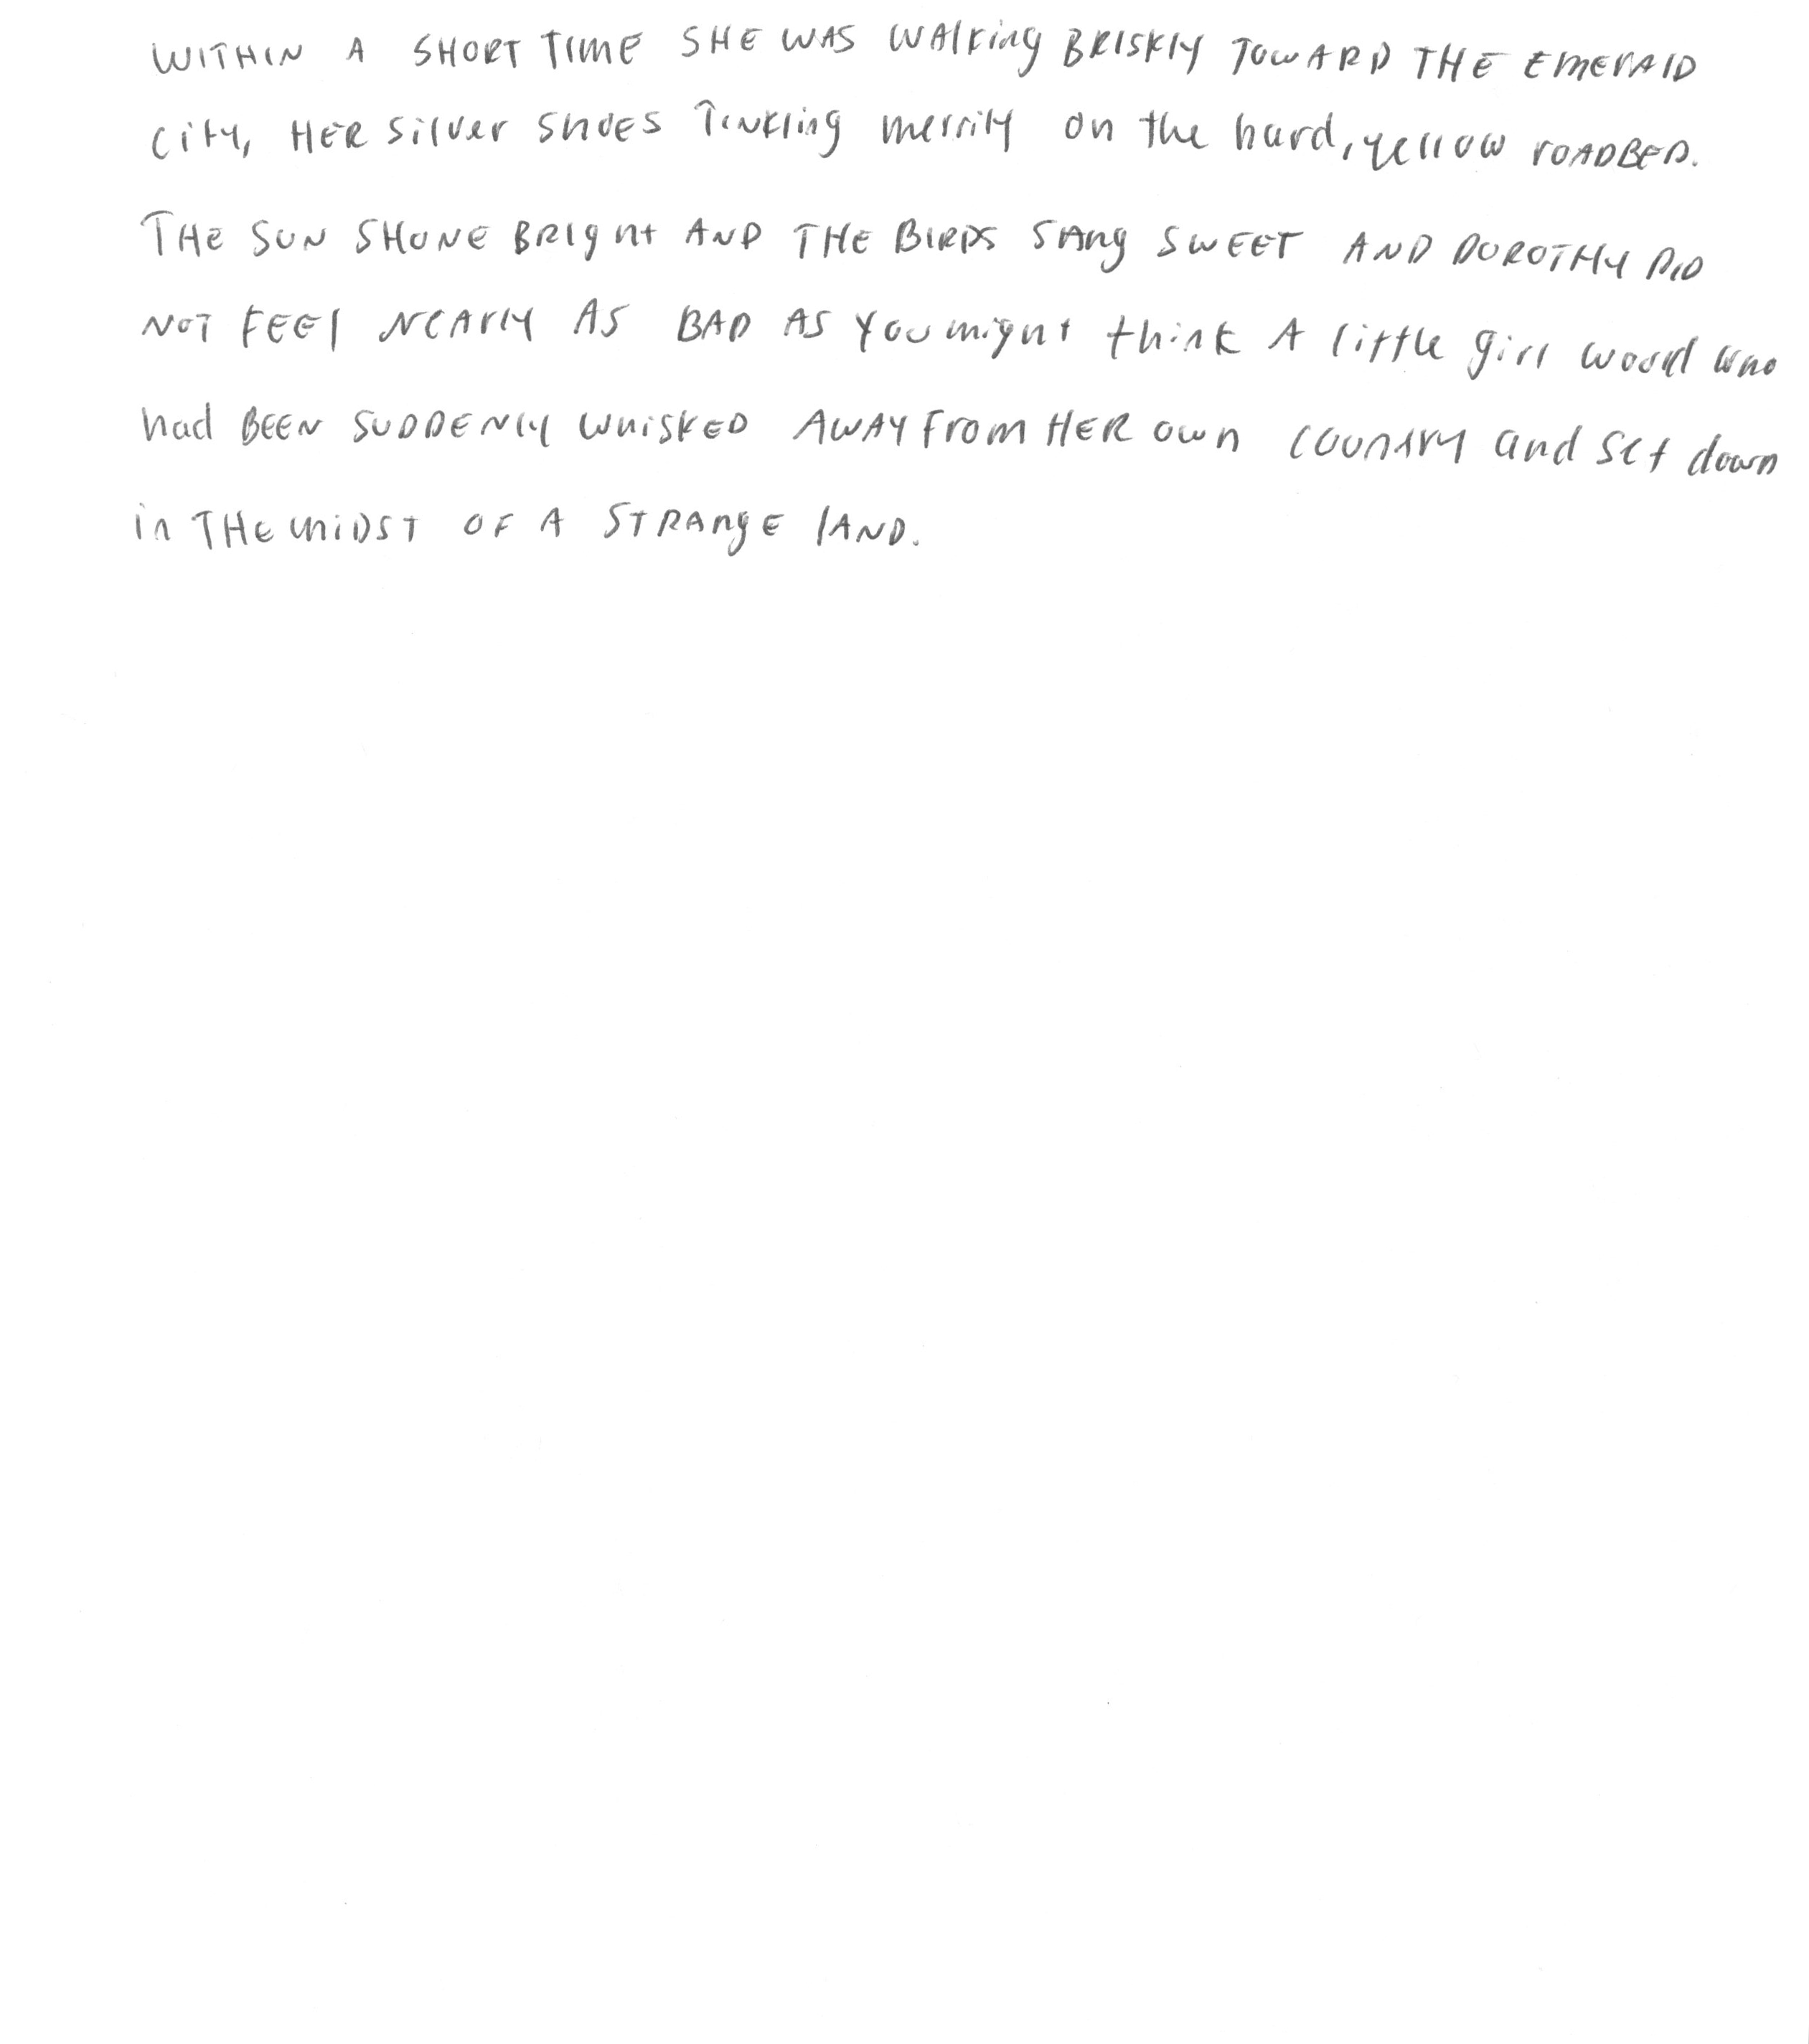 WITHIN A SHORT TIME SHE WAS WALKing BRISKLY TOWARD THE EMERALD
City, HER Silver SHOES TINKling merrily on the hard, yellow ROADBED.
THE SUN SHONE BRIght AND THE BIRDS SAng SWEET AND DOROTHY DID
NOT FEEL NEARLY AS BAD AS YOU might think A little girl would who
had BEEN SUDDENLY WhiSKED AWAY From HER own country and set down
in THE miDST OF A STRAngE LAND.